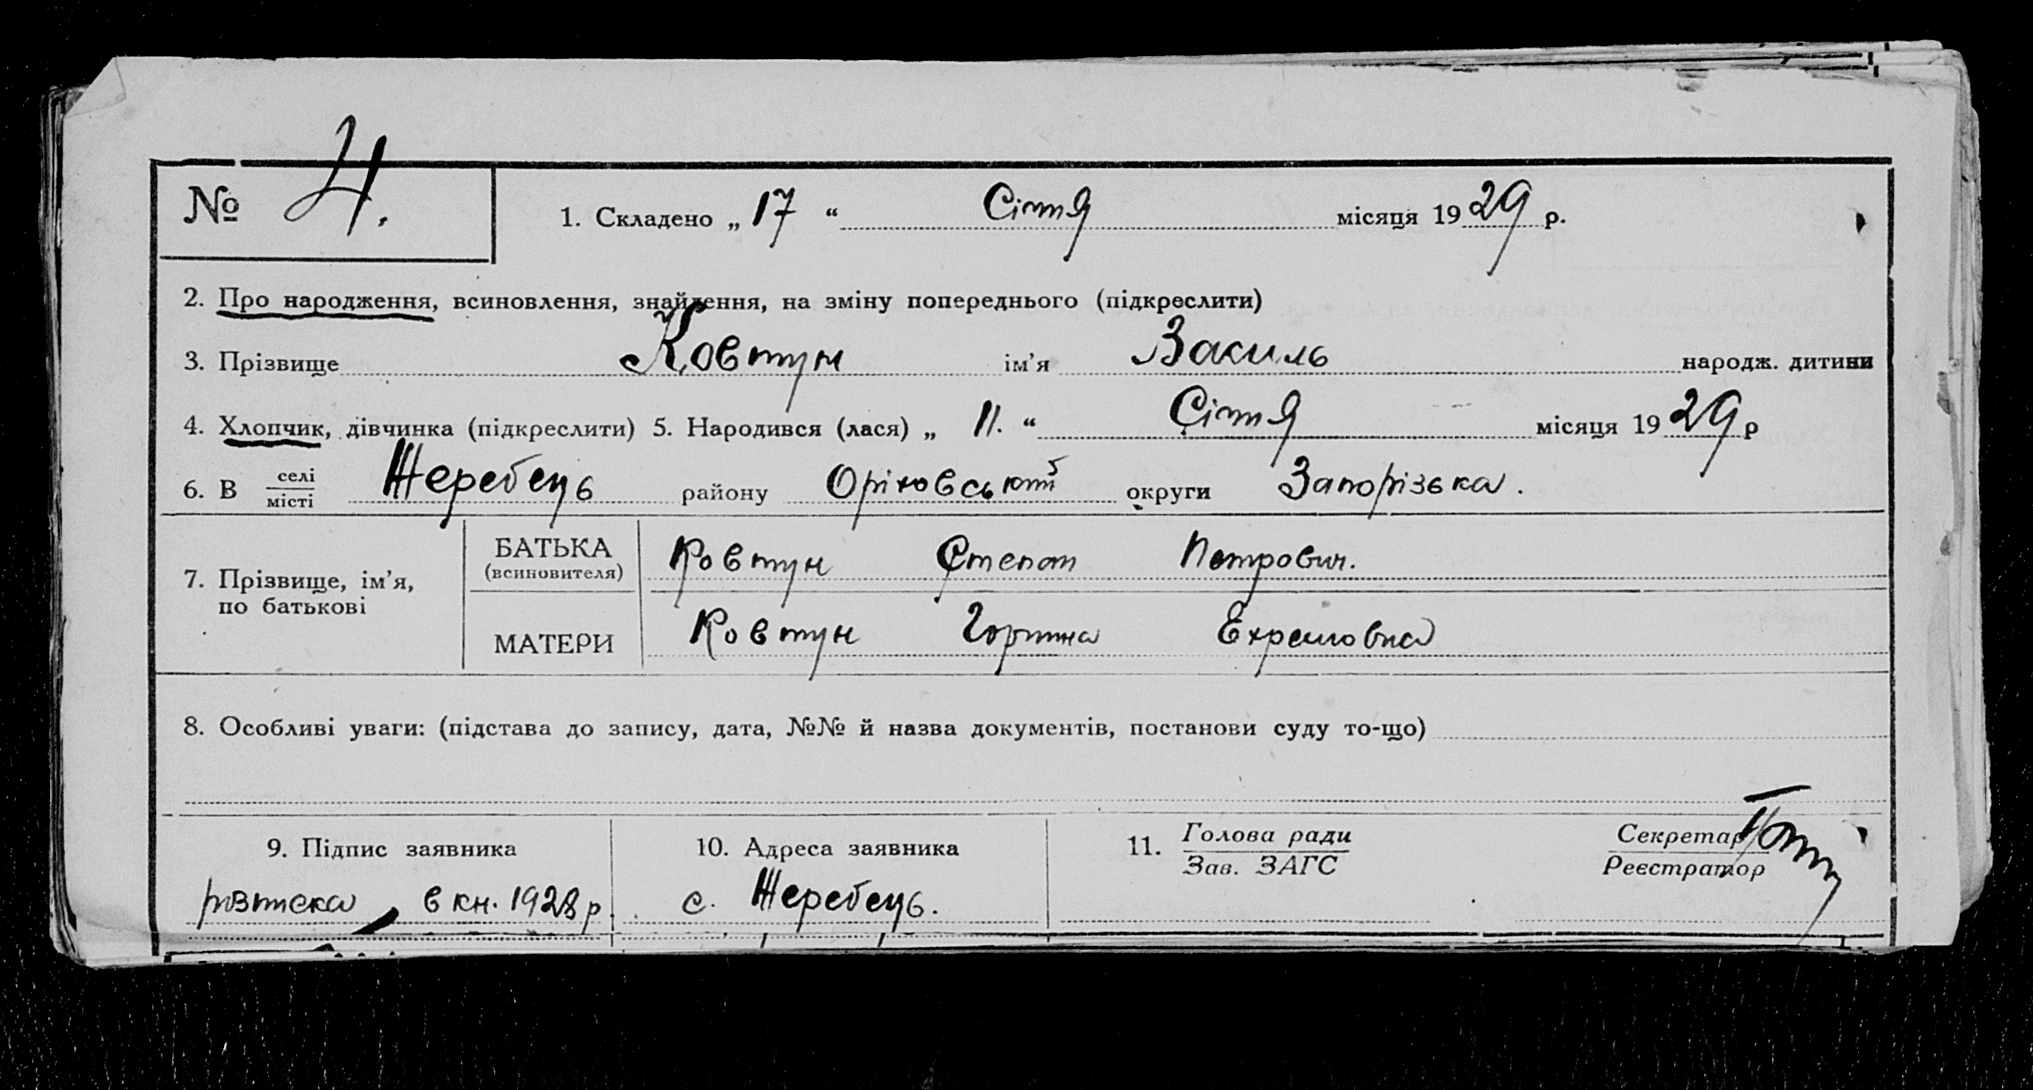 № 4.
1. Складено „ 17 “ Січня місяця 1929 р.
2. Про народження, всиновлення, знайдення, на зміну попереднього (підкреслити)
3. Прізвище Ковтун ім’я Василь народж. дитини
4. Хлопчик, дівчинка (підкреслити) 5. Народився (лася) „ 11. “ Січня місяця 1929 р
6. В селі/місті Жеребець району Оріховський округи Запорізька.
7. Прізвище, ім’я, по батькові
БАТЬКА (всиновителя) Ковтун Степан Петрович.
МАТЕРИ Ковтун Горпина
8. Особливі уваги: (підстава до запису, дата, №№ й назва документів, постанови суду то-що)
9. Підпис заявника
в кн. 1928 р.
10. Адреса заявника
с. Жеребець.
11. Голова ради
Зав. ЗАГС
Секретар
Реєстратор